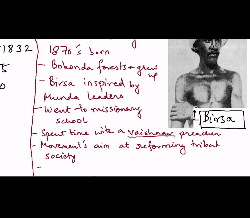 1832
5
0
1870's born
- Bohonda forests & grew up
- Birsa inspired by
Munda leaders
- Went to missionary
school
- Spent time with a vaishnav preacher
- Movement's aim at reforming tribal
society
Birsa